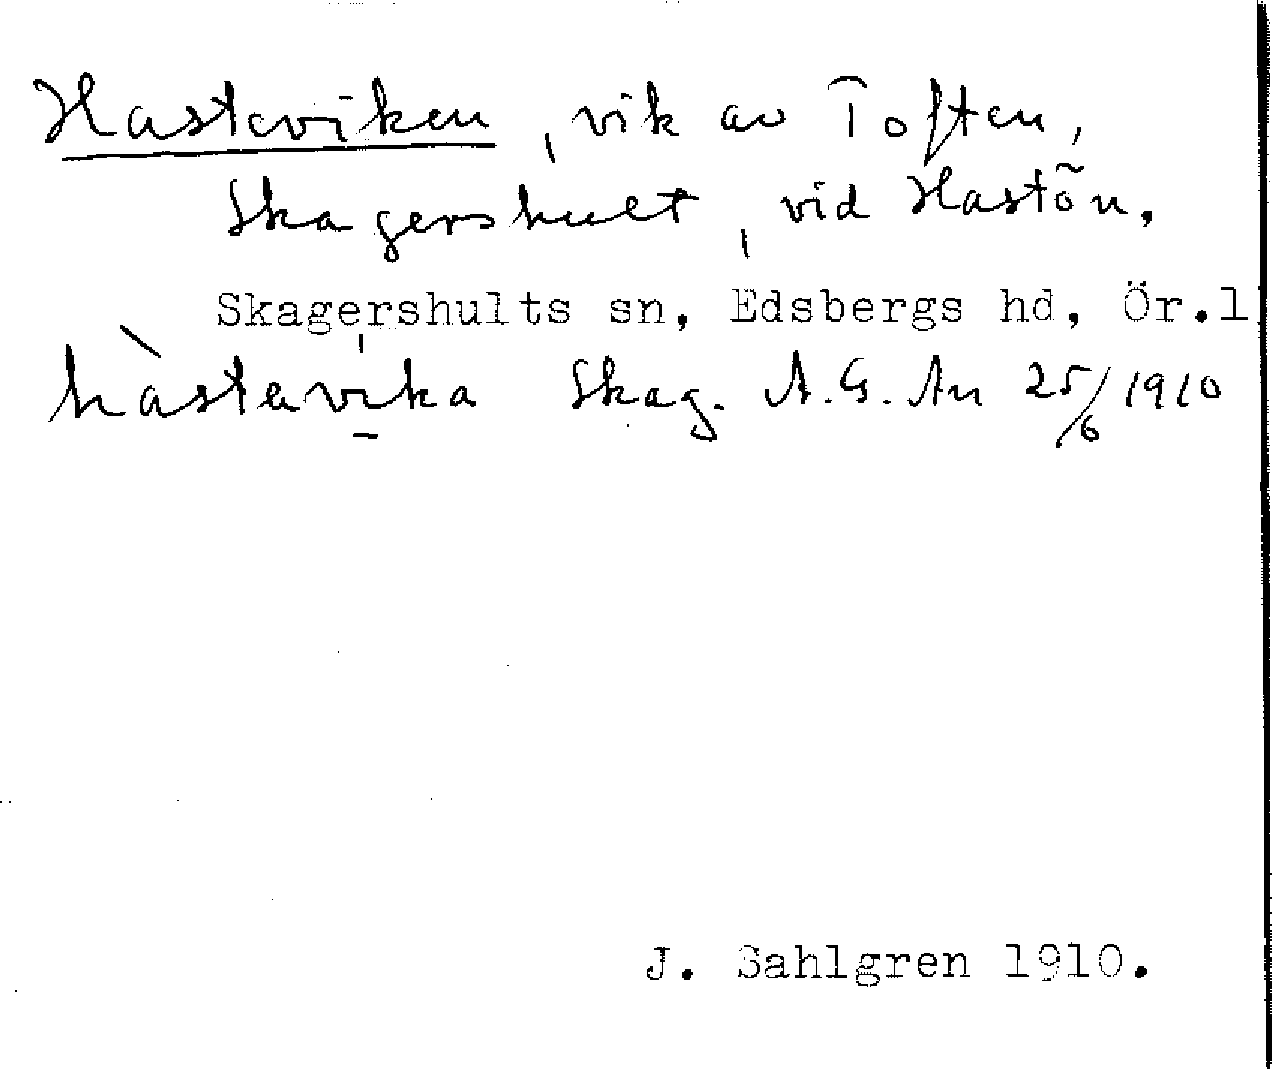 Hasteviken, vik av Toften,
Skagershult, vid Hastön.
Skagershults sn, Edsbergs hd, Ör.l
hàstavika Skag. A.G. An 25/6 1910
J. Sahlgren 1910.